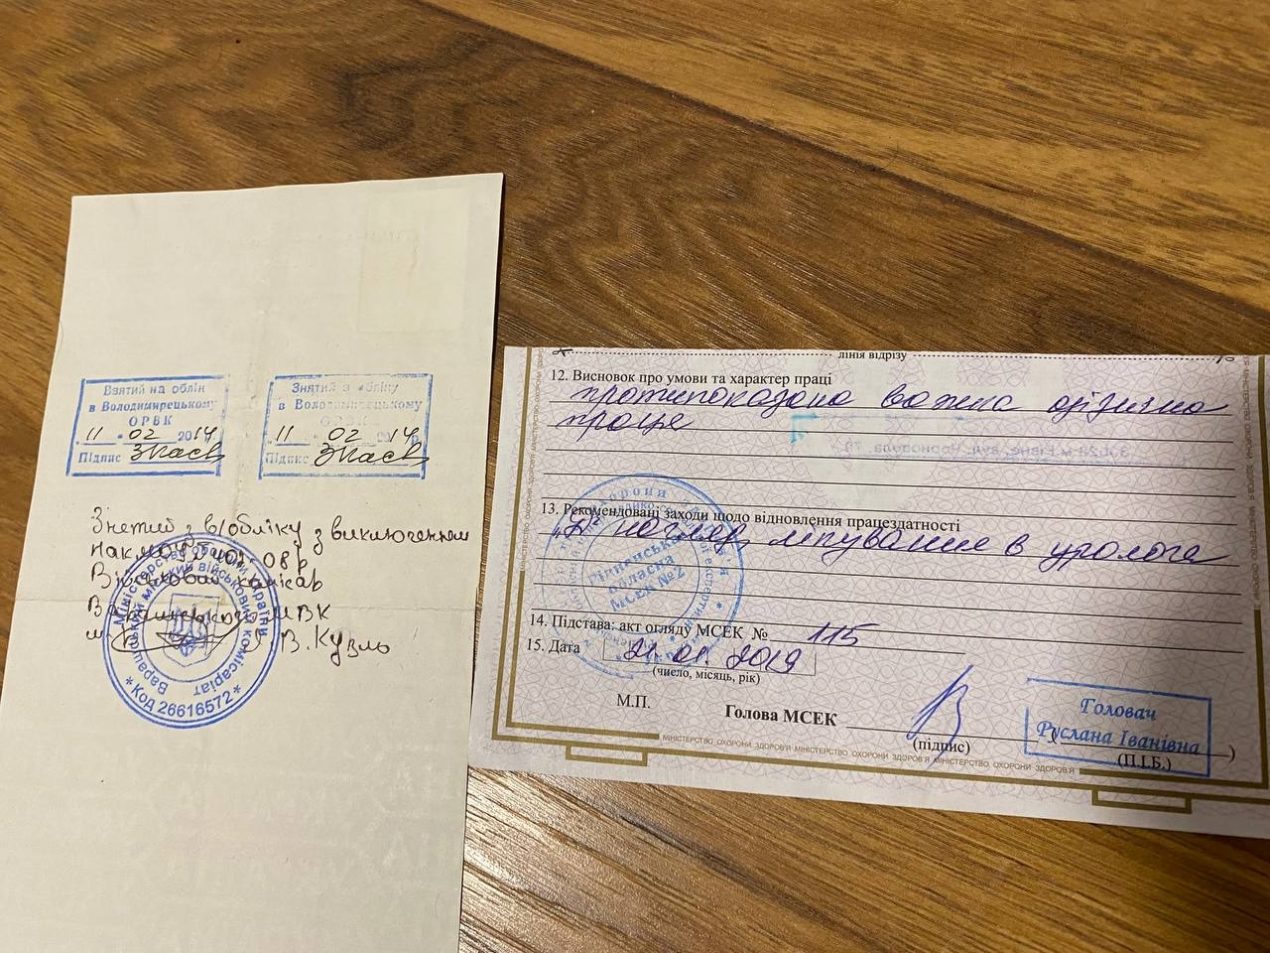 Взятий на облік
в Володимирецькому
ОРВК
"11" 02 2014
Підпис
Знятий з обліку
в Володимирецькому
"11" 02 2014р.
Підпис
Знятий з в/обліку з виключенням
Військовий комісар
МВК
В. Кузль
Міністерство оборони України
Варашський міський військовий комісаріат
* Код 26616572 *
лінія відрізу
12. Висновок про умови та характер праці
протипоказана важка фізична
праця
13. Рекомендовані заходи щодо відновлення працездатності
"Д" нагляд, лікування в уролога
Рівненська
обласна
МСЕК №2
14. Підстава: акт огляду МСЕК № 115
15. Дата 21.01.2019
(число, місяць, рік)
М.П.
Голова МСЕК
(підпис)
Головач
Руслана Іванівна
(П.І.Б.)
МІНІСТЕРСТВО ОХОРОНИ ЗДОРОВ'Я МІНІСТЕРСТВО ОХОРОНИ ЗДОРОВ'Я МІНІСТЕРСТВО ОХОРОНИ ЗДОРОВ'Я